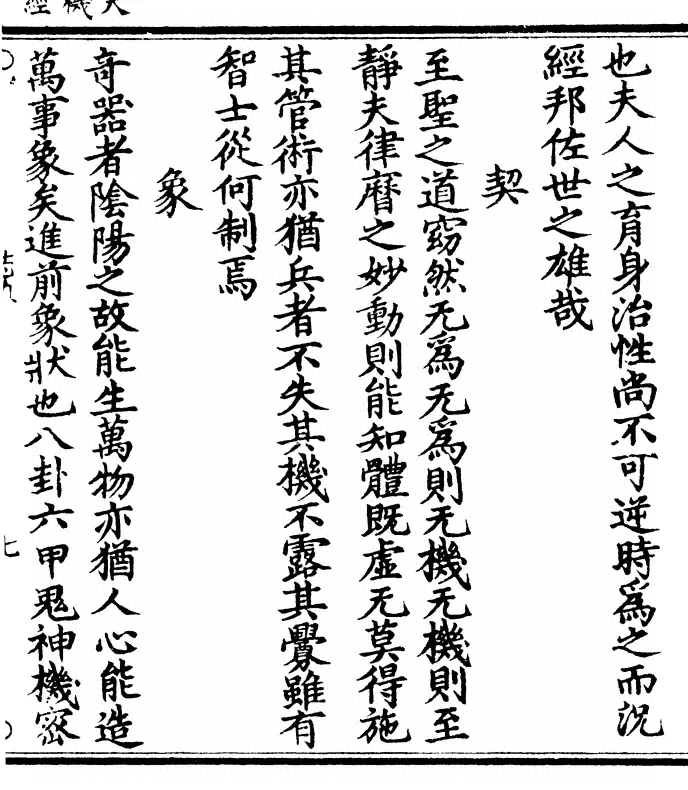 也夫人之育身治性尚不可逆時爲之而況
經邦佐世之雄哉
契
至聖之道窈然无爲无爲則无機无機則至
靜夫律曆之妙動則能知體既虛无莫得施
其管術亦猶兵者不失其機不露其釁雖有
智士從何制焉
象
竒噐者陰陽之故能生萬物亦猶人心能造
萬事象矣進前象狀也八卦六甲鬼神機密
七